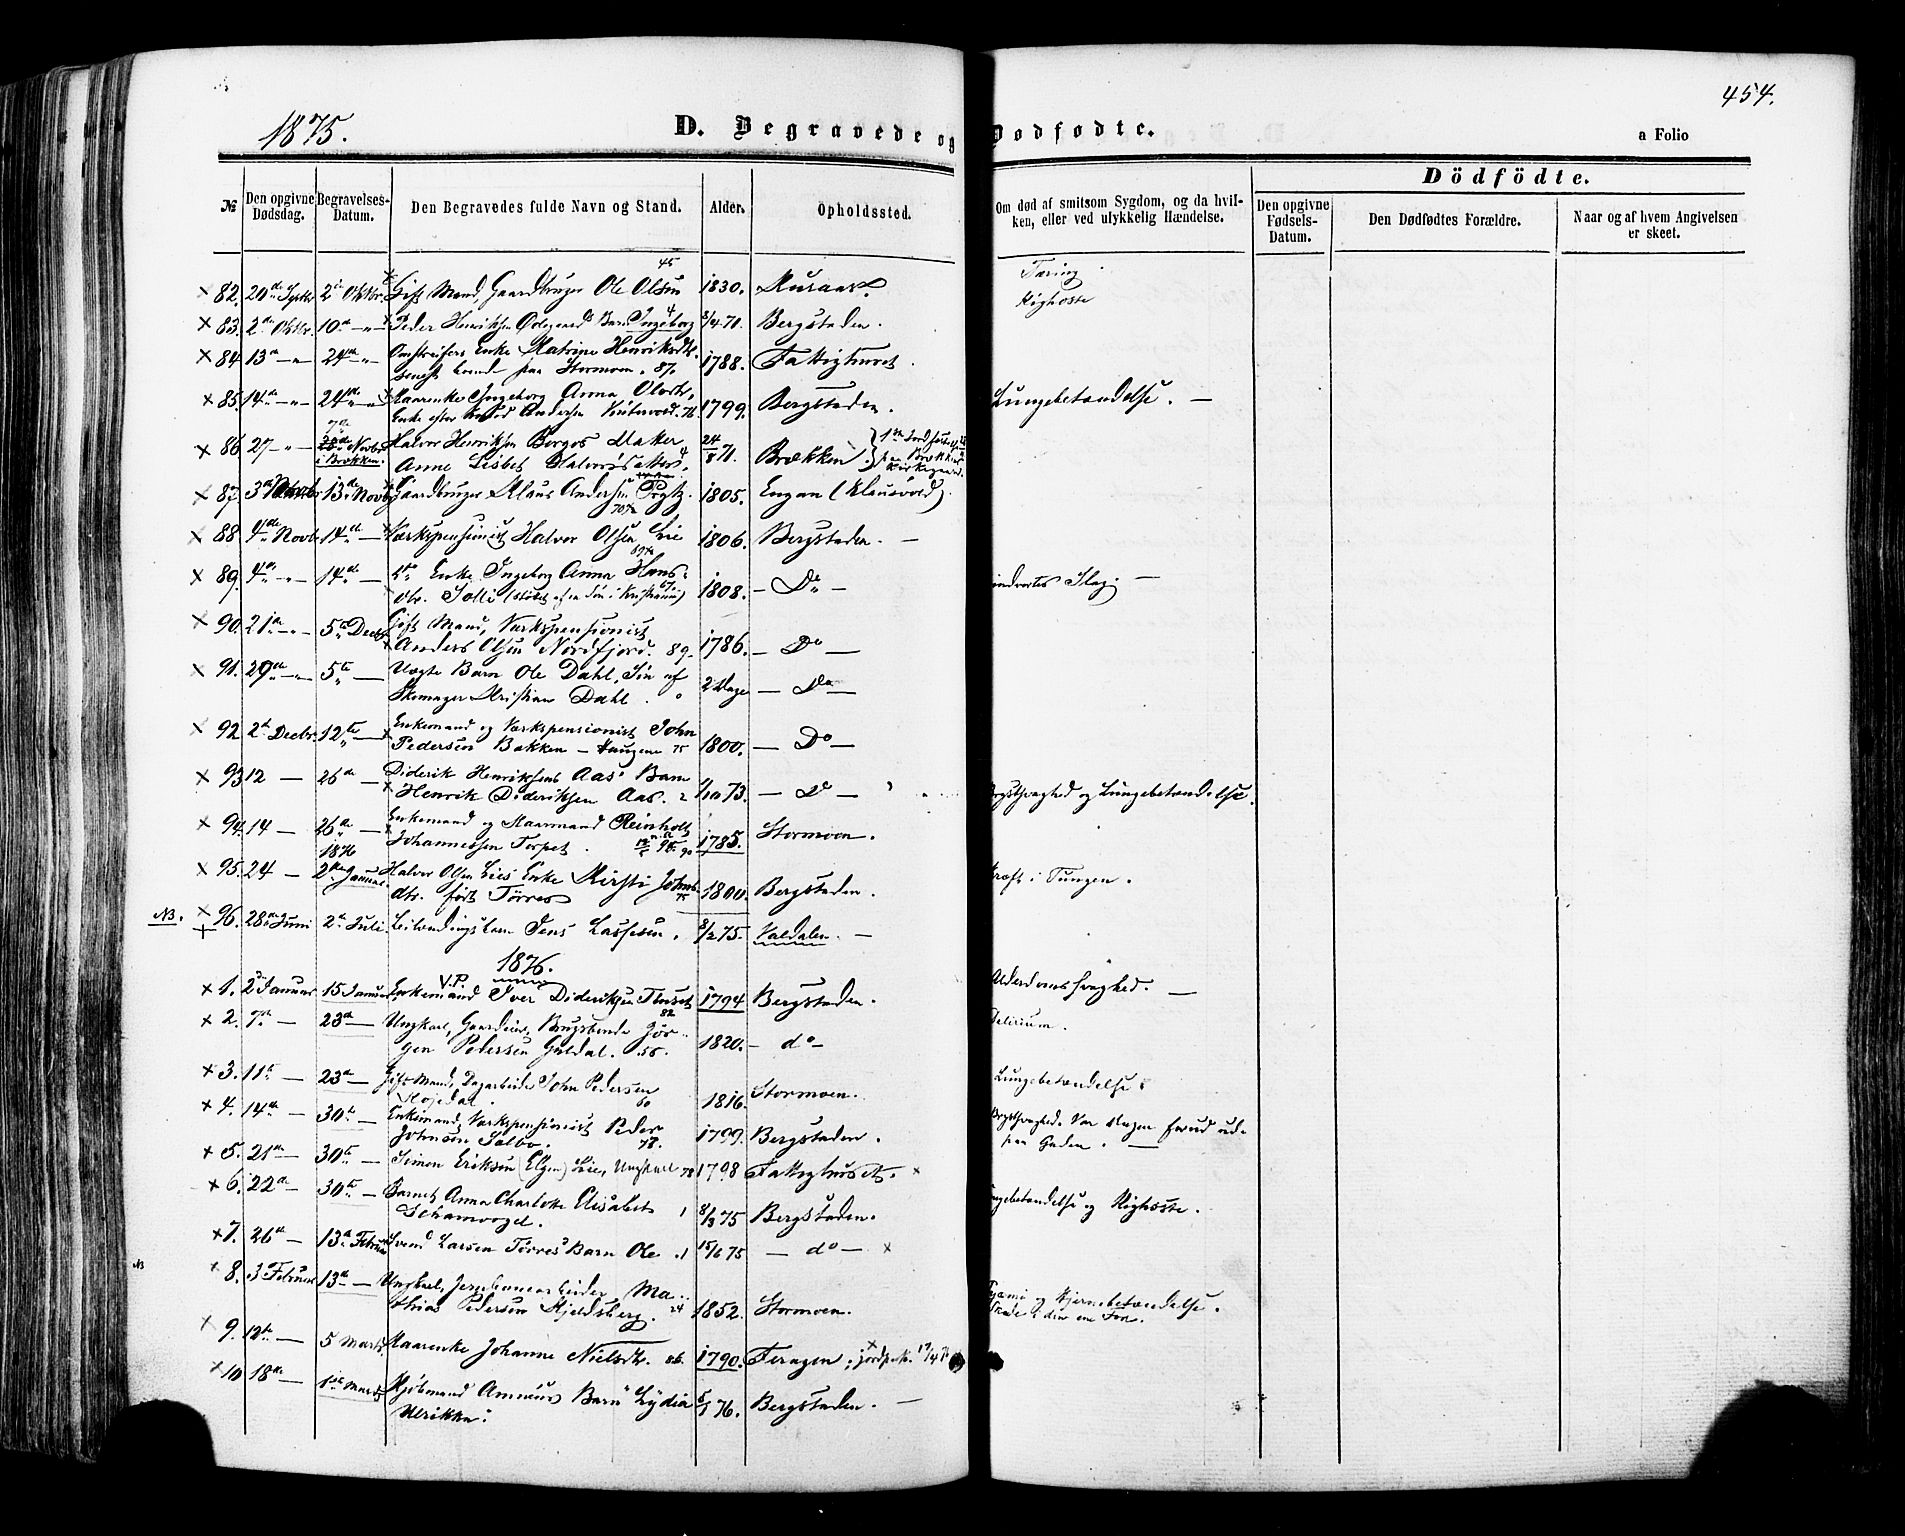 454.
1875.
D. Begravede og Dødfødte.
a Folio
Dödfödte.
№
Den opgivne Dødsdag.
Begravelses-Datum.
Den Begravedes fulde Navn og Stand.
Alder.
Opholdssted.
Om død af smitsom Sygdom, og da hvilken, eller ved ulykkelig Hændelse.
Den opgivne Fødsels-Datum.
Den Dødfødtes Forældre.
Naar og af hvem Angivelsen er skeet.
× 82. 20de 2den Oktbr. Gift Mand, Gaardbruger Ole Olsen 45 1830. Tæring
× 83. 2den Oktbr. 10de -"- Peder Henriksen Barn Ingeborg 4 71. Bergstaden. Kighoste
× 84 13de -"- 24de -"- Enke Katrine Henriksdtr.
paa Stormoen. 87. 1788. Fattighuset.
× 85. 14de -"- 24de Kaarenke Ingeborg Anna Olsdtr.
Enke efter Andersen 76. 1799. Bergstaden. Lungebetændelse. —
× 86 27 -"- 7de Novbr. i Brækken. Halvor Henriksen Borgos
Anne Lisbet Halvorsdatter, 4 24/8 71. Brækken
× 87. 3de 13de Novbr. Gaardbruger Klaus Andersen 70 1805. Engan (Klausvold).
× 88. 4de Novbr. 14de — Værkspensionist Halvor Olsen Lie 69 1806. Bergstaden. —
× 89. 4de -"- 14de — Enke Ingeborg Anna Hans-
dtr. 67 1808. — Do — indvortes Slag. —
× 90. 21de -"- 5te Decbr. Gift Mand, Værkspensionist
Anders Olsen Nordfjord. 89. 1786. — Do —
× 91. 29de -"- 5te — Uægte Barn Ole Dahl, Søn af
Skomager Kristian Dahl. 2 Dage — Do —
× 92 2den Decbr. 12te — Enkemand og Værkspensionist John
Pedersen Bakken — Haugene 75 1800. — Do —
× 93 12 — 26de — Diderik Henriksens Aas' Barn
Henrik Dideriksen Aas. 2 73. — Do — Brystsvaghed og Lungebetændelse.
× 94. 14 — 26de — Enkemand og Kaarmand Reinholt
Johannessen Torpet. 90 1785. Stormoen.
1876
× 95. 24 — 2den Januar. Halvor Olsen Lies Enke Kirsti Johns-
dtr. født Tørres 75 1800. Bergstaden. Kræft i Tungen.
NB. × 96. 28de Juni 2den Juli Jens Lassesen. 75. Valdalen. —
1876.
× 1. 2den Januar 15 Januar Enkemand V.P. Iver Dideriksen Tinset 82 1794 Bergstaden. Alderdomssvaghed. —
× 2. 7de — 23de — Ungkarl, Gaardeier, Brugsbonde Jør-
gen Pedersen Guldal. 56. 1820. — do — Delirium.
× 3. 11te — 23de — Gift Mand, Dagarbeider John Pedersen
60 1816. Stormoen. Lungebetændelse
× 4. 14de — 30te — Enkemand, Værkspensionist Peder
Johnsen Selbo. 78. 1799. Bergstaden. Brystsvaghed. Var Dagen forud ude
paa Gaden. —
× 5. 21de — 30te — Simon Eriksen (Elgen) Lie, Ungkarl 78 1798 Fattighuset. ×
× 6. 22de — 30te — Barnet Anna Charlotte Elisabet
Schamvogel. 1 8/3 75 Bergstaden. Lungebetændelse og Kighoste.
× 7. 26de — 13de Februar Svend Larsen Tørres' Barn Ole. 1 15/6 75 — do — ×
NB × 8. 3 Februar 13de — Ungkarl, Jernbanearbeider Ma-
thias Pedersen Kjeldsberg. 24 1852. Stormoen. Pyæmi og Hjernebetændelse.
Skade i den ene Fod.
× 9. 12te — 5 Marts. Kaarenke Johanne Nielsdtr. 86. 1790. Feragen; jordpaak.
× 10 18de — 1ste Marts Barn Lydia
Ulrikke. 76. Bergstaden. —